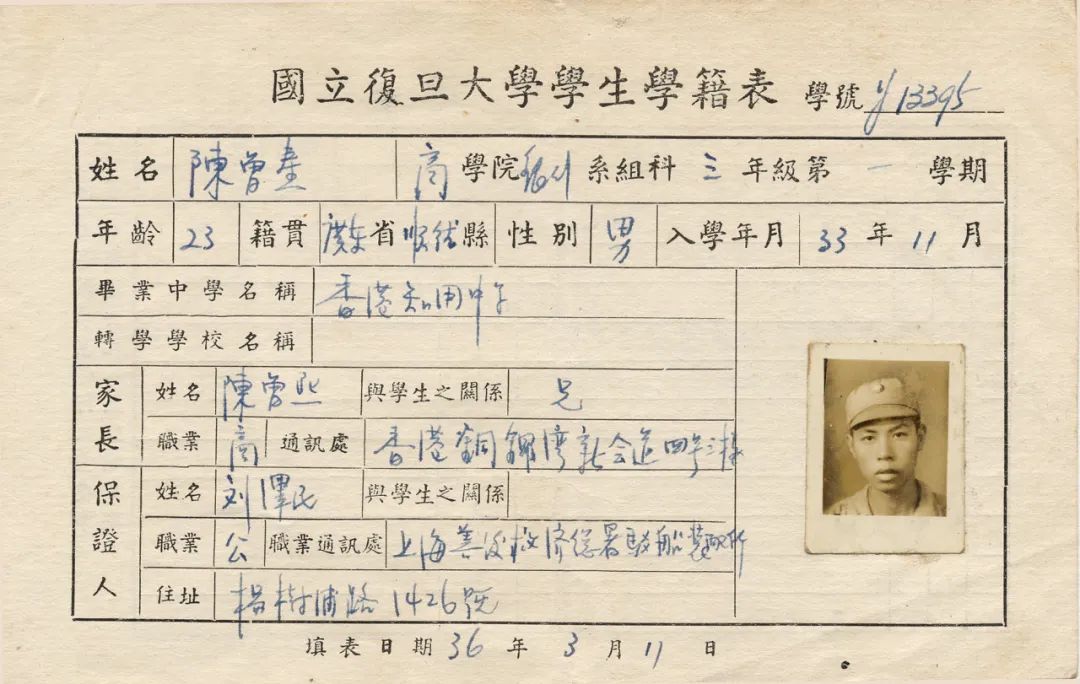 國立復旦大學學生學籍表 學號 y13395
姓名 陳曾燾 商 學院 銀行 系組科 三 年級第 一 學期
年齡 23 籍貫 廣东 省 順德 縣 性別 男 入學年月 33 年 11 月
畢業中學名稱 香港知用中学
轉學學校名稱
家長 姓名 陳曾熙 與學生之關係 兄
職業 商 通訊處 香港銅鑼灣新会道四号三楼
保證人 姓名 刘澤民 與學生之關係
職業 公 職業通訊處 上海善後救济總署駁船裝配所
住址 楊樹浦路1426號
填表日期 36 年 3 月 11 日